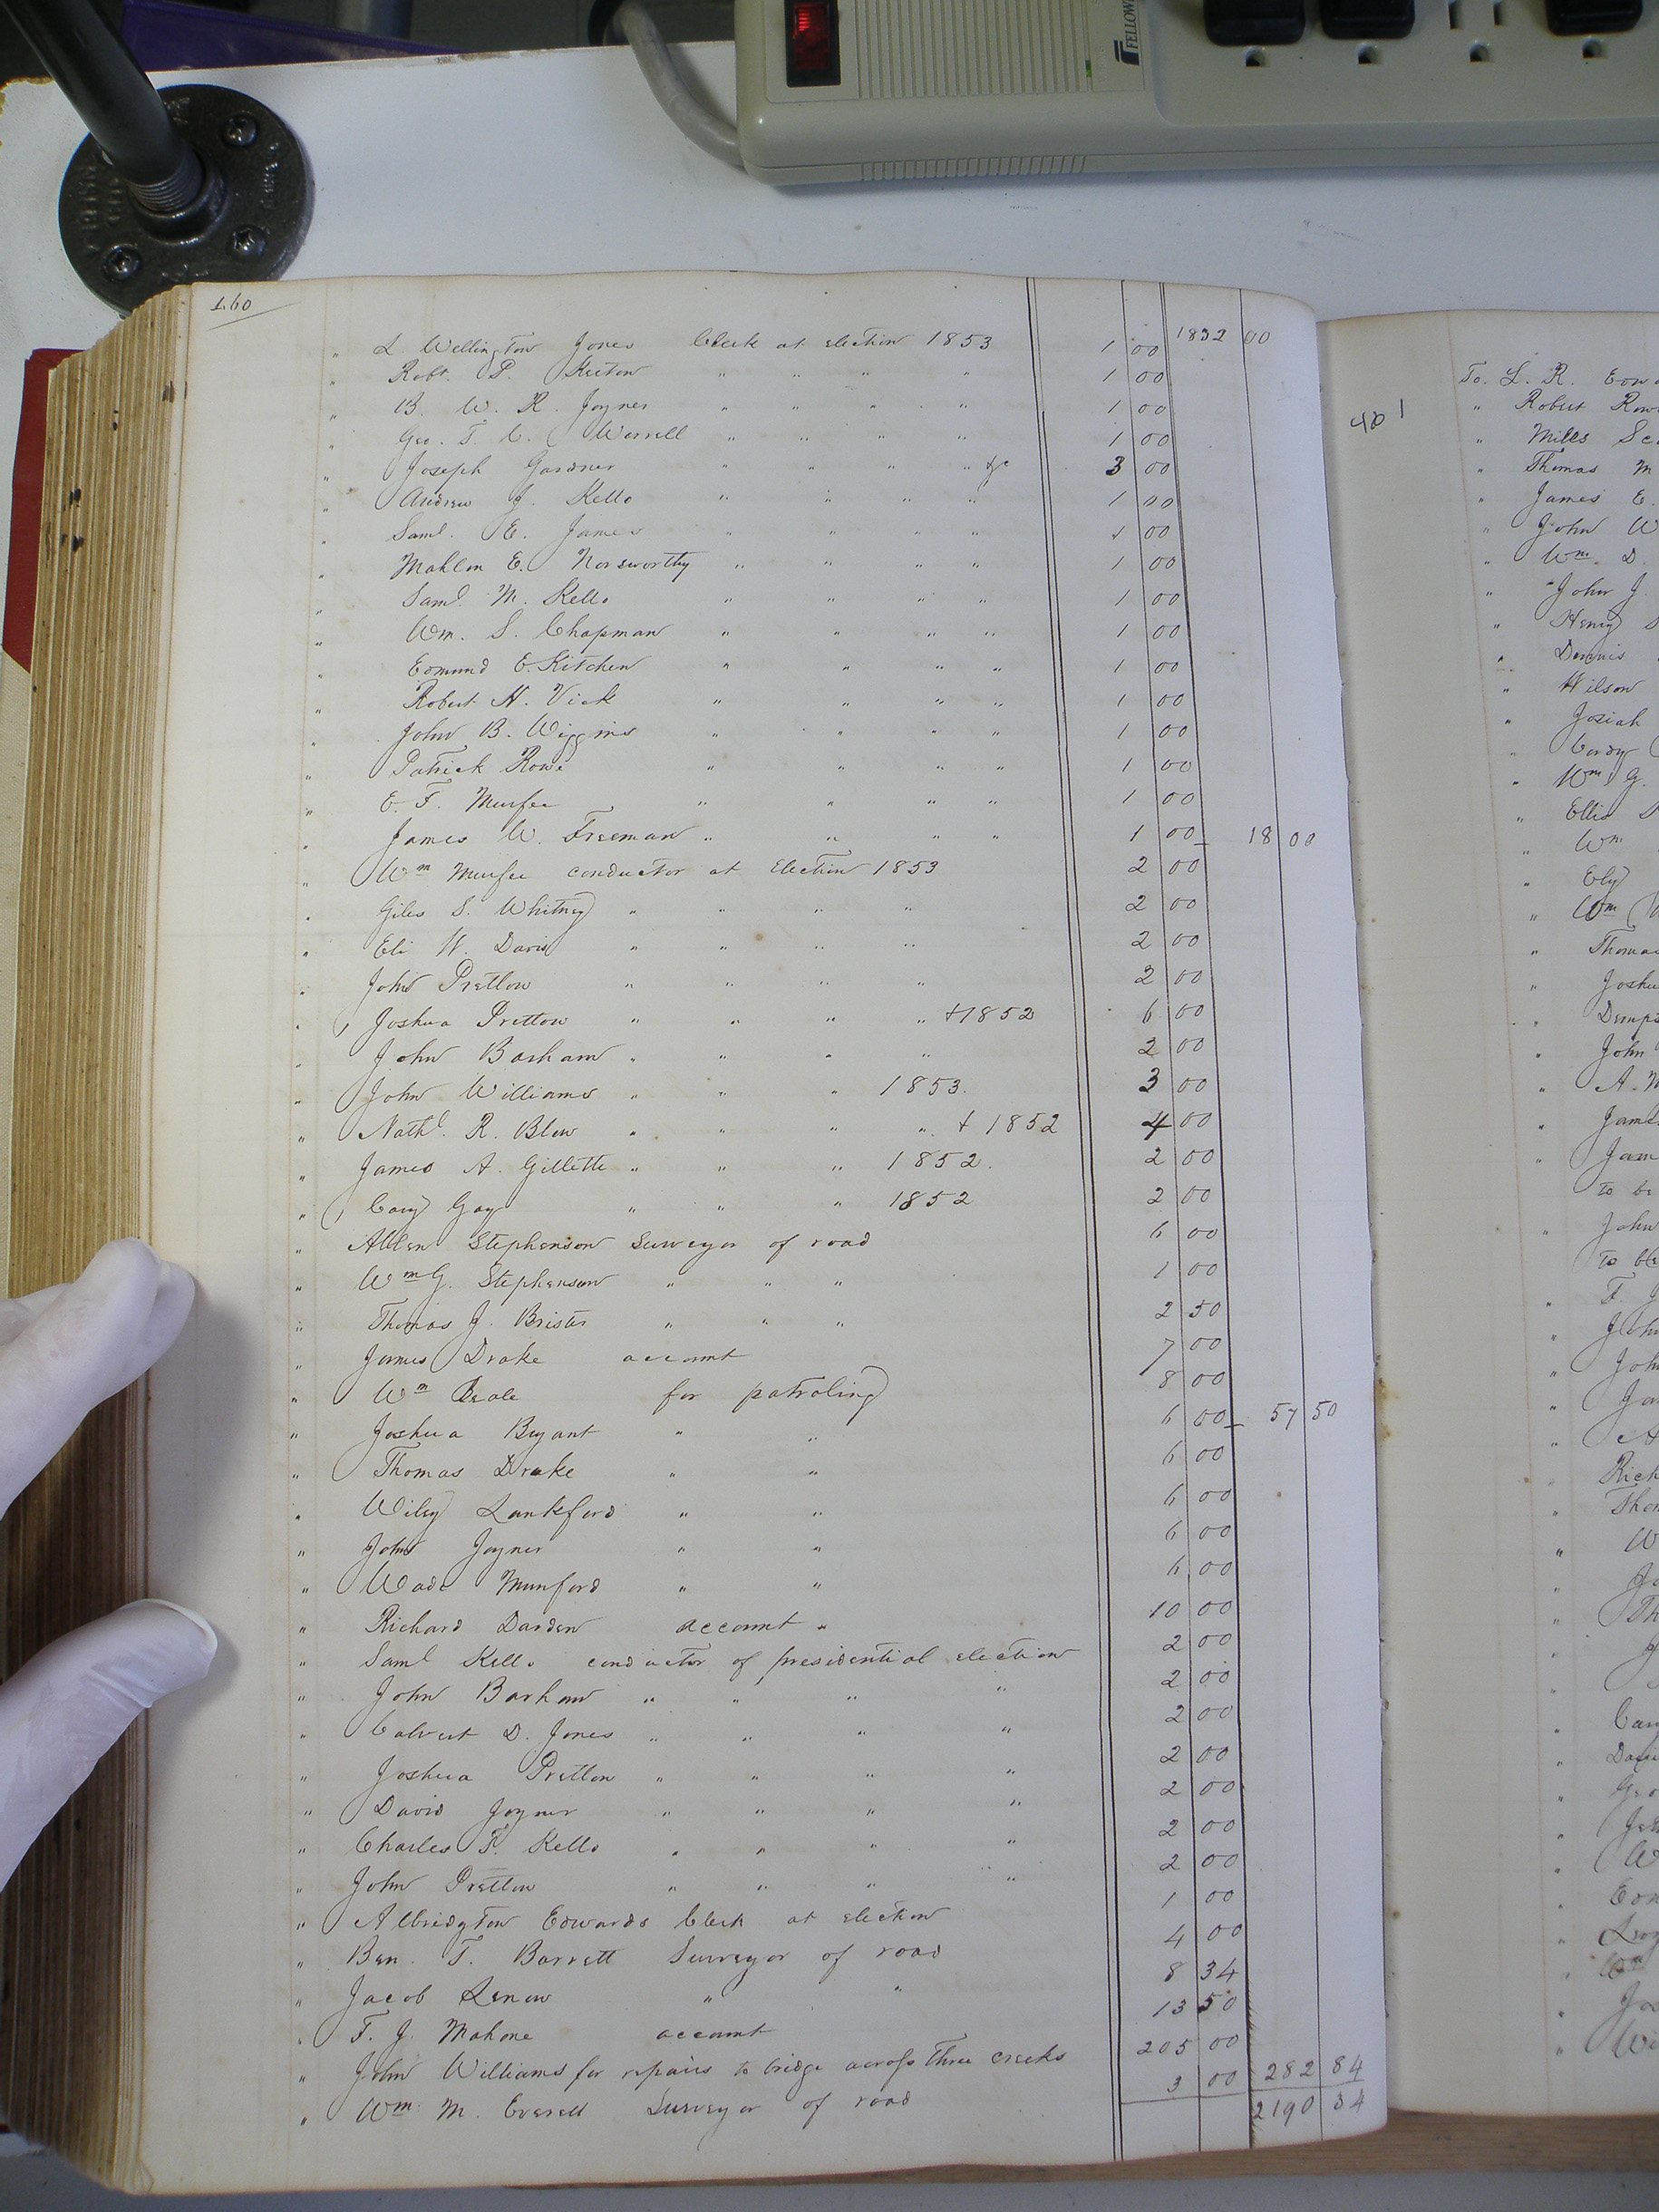 FELLOW
160
" L Wellington Jones Clerk at election 1853 1 00 1832 00
" Robt. P. Kirton " " " " 1 00
" B. W. R. Joyner " " " " 1 00
" Geo. T. C. Worrell " " " " 1 00
" Joseph Gardner " " " " &c 3 00
" Andrew J. Kello " " " " 1 00
" Saml. E. James " " " " 1 00
" Mahlon E. Norsworthy " " " " 1 00
" Saml. M. Kello " " " " 1 00
" Wm. S. Chapman " " " " 1 00
" Edmund E. Kitchen " " " " 1 00
" Robert H. Vick " " " " 1 00
" John B. Wiggins " " " " 1 00
" Patrick Rowe " " " " 1 00
" E. F. Murfee " " " " 1 00
" James W. Freeman " " " " 1 00 18 00
" Wm Murfee conductor at Election 1853 2 00
" Giles S. Whitney " " " " 2 00
" Eli W. Davis " " " " 2 00
" John Pretlow " " " " 2 00
" Joshua Pretlow " " " " +1852 6 00
" John Barham " " " " 2 00
" John Williams " " " 1853. 3 00
" Nathl. R. Blow " " " " + 1852 4 00
" James A. Gillette " " " 1852. 2 00
" Cary Gay " " " 1852 2 00
" Allen Stephenson Surveyor of road 6 00
" Wm G. Stephenson " " " 1 00
" Thomas J. Brister " " " 2 50
" James Drake account 7 00
" Wm Beale for patroling 8 00
" Joshua Bryant " " 6 00 57 50
" Thomas Drake " " 6 00
" Wiley Lankford " " 6 00
" John Joyner " " 6 00
" Wade Munford " " 6 00
" Richard Darden account " 10 00
" Saml Kello conductor of presidential election 2 00
" John Barham " " " " 2 00
" Calvert D. Jones " " " " 2 00
" Joshua Pretlow " " " " 2 00
" David Joyner " " " " 2 00
" Charles F. Kello " " " " 2 00
" John Pretlow " " " " 2 00
" Albridgton Edwards Clerk at election 1 00
" Ben. T. Barrett Surveyor of road 4 00
" Jacob Lenow " " 8 34
" F. J. Mahone account 13 50
" John Williams for repairs to bridge across three creeks 205 00
" Wm. M. Everett Surveyor of road 3 00 282 84
2190 34
401
To. L. R. Edw
" Robert Row
" Mills Sc
" Thomas M
" James E.
" John W
" Wm. D.
" John J.
" Henry S
" Dennis
" Wilson
" Josiah
" Wm G.
" Ellis
" Wm
" Ely
" Wm
" Thomas
" Joshu
" Demps
" John
" A. M
" James
" Jam
to be
" John
to be
" F. J
" John
" John
" Ja
" Rich
" Thom
" W
" Th
" Car
" Davi
" Geo
" W
" Edm
" Wm
" Jos
" Wi